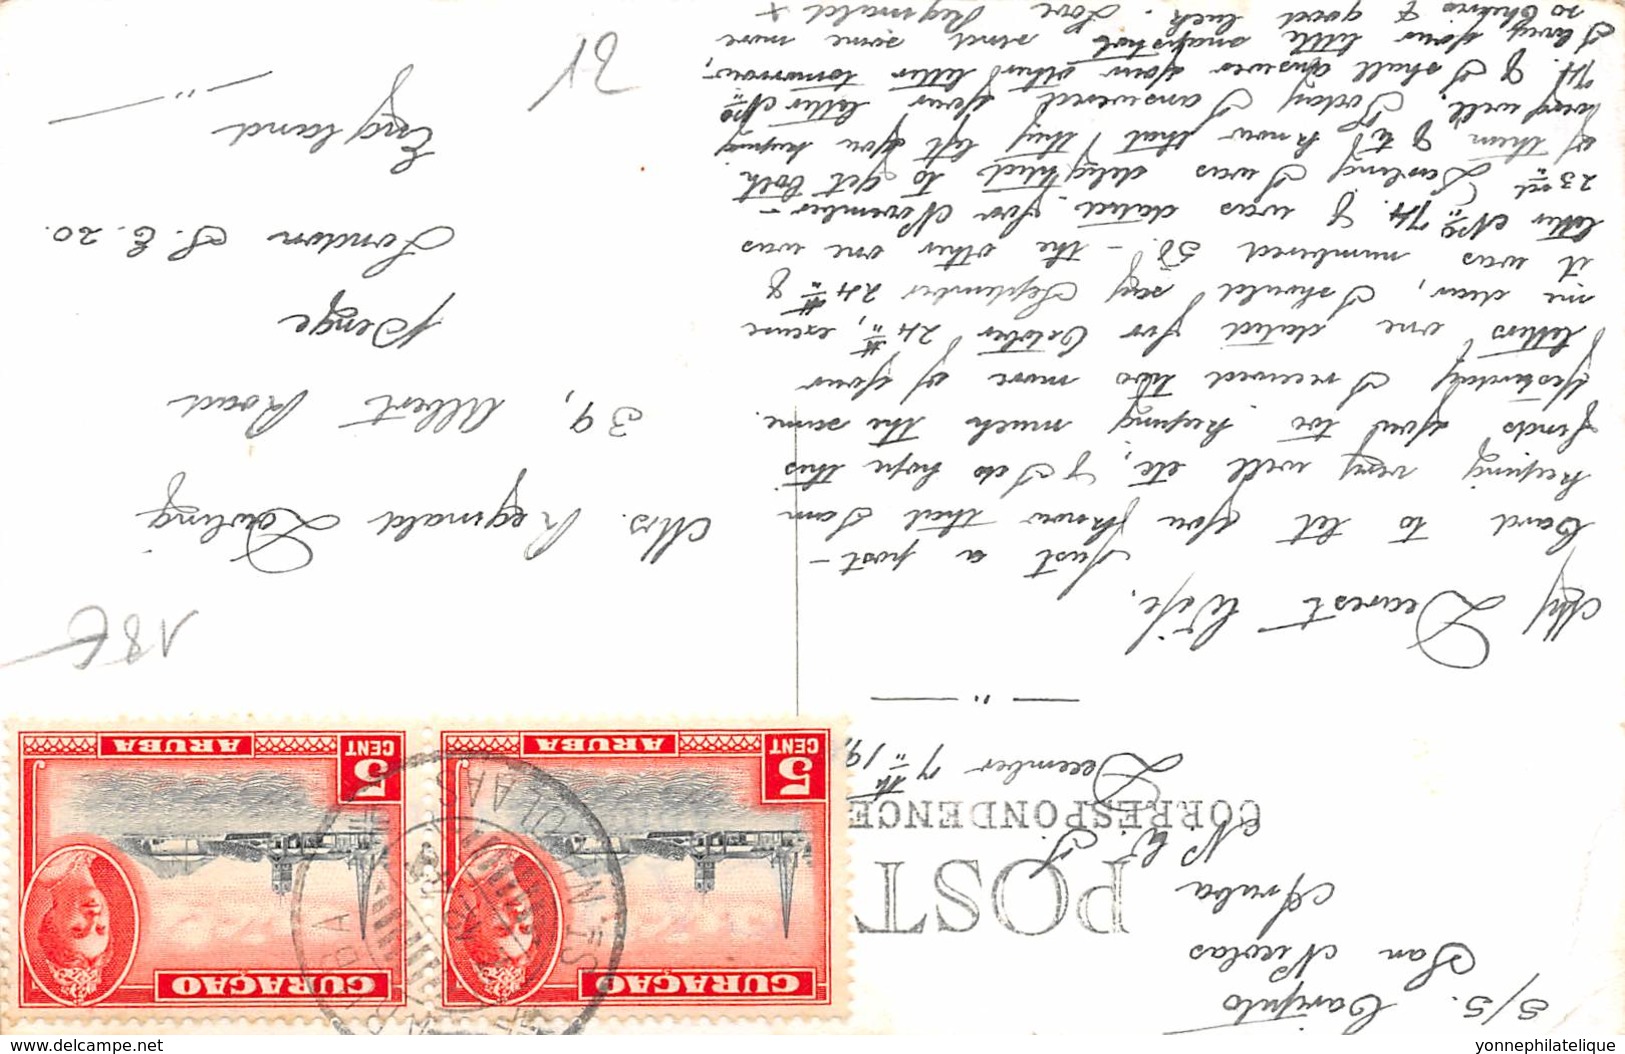 S/S. Caripito
San Nicolas
Aruba
N. W. I.
December 7th 19
POST
CORRESPONDENCE
My Dearest Wife.
Just a post-
Card to let you know that I am
keeping very well etc, & I do hope this
finds you too keeping much the same.
Yesterday I received two more of your
letters one dated for October 24th, excuse
me dear, I should say September 24th &
it was numbered 58. - the other one was
letter No 74. & was dated for November -
23rd Darling I was delighted to get both
of them, & to know that they left you keeping
very well. Today I answered your letter No
74. & I shall answer your other letter tomorrow,
I envy your little snapshot send some more
so cheerio & good luck. Love Reginald x
Mrs. Reginald Dowling
39, Albert Road
Penge
London S. E. 20.
England
18€
CURAÇAO
5 CENT
ARUBA
CURAÇAO
5 CENT
ARUBA
ARUBA
yonnephilatelique
delcampe.net